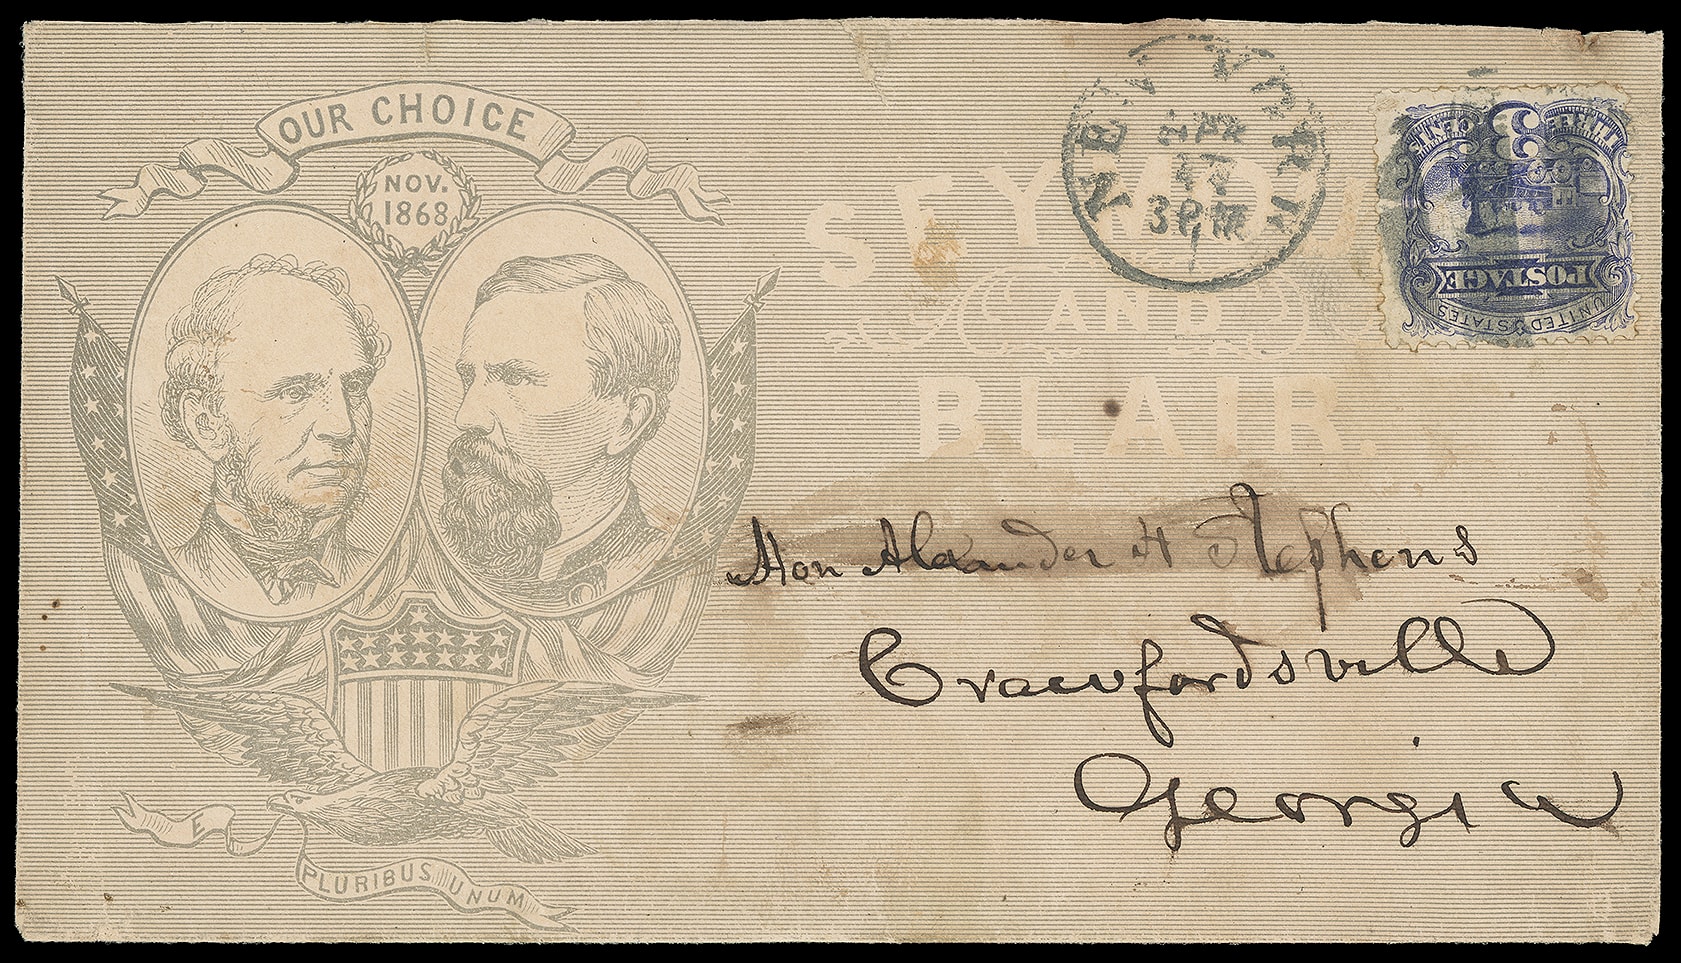 OUR CHOICE
NOV.
1868
SEYMOUR
AND
BLAIR.
NEW YORK
APR
17
3 PM
3
THREE CENTS
POSTAGE
UNITED STATES
Hon Alexander H Stephens
Crawfordsville
Georgia
E
PLURIBUS UNUM